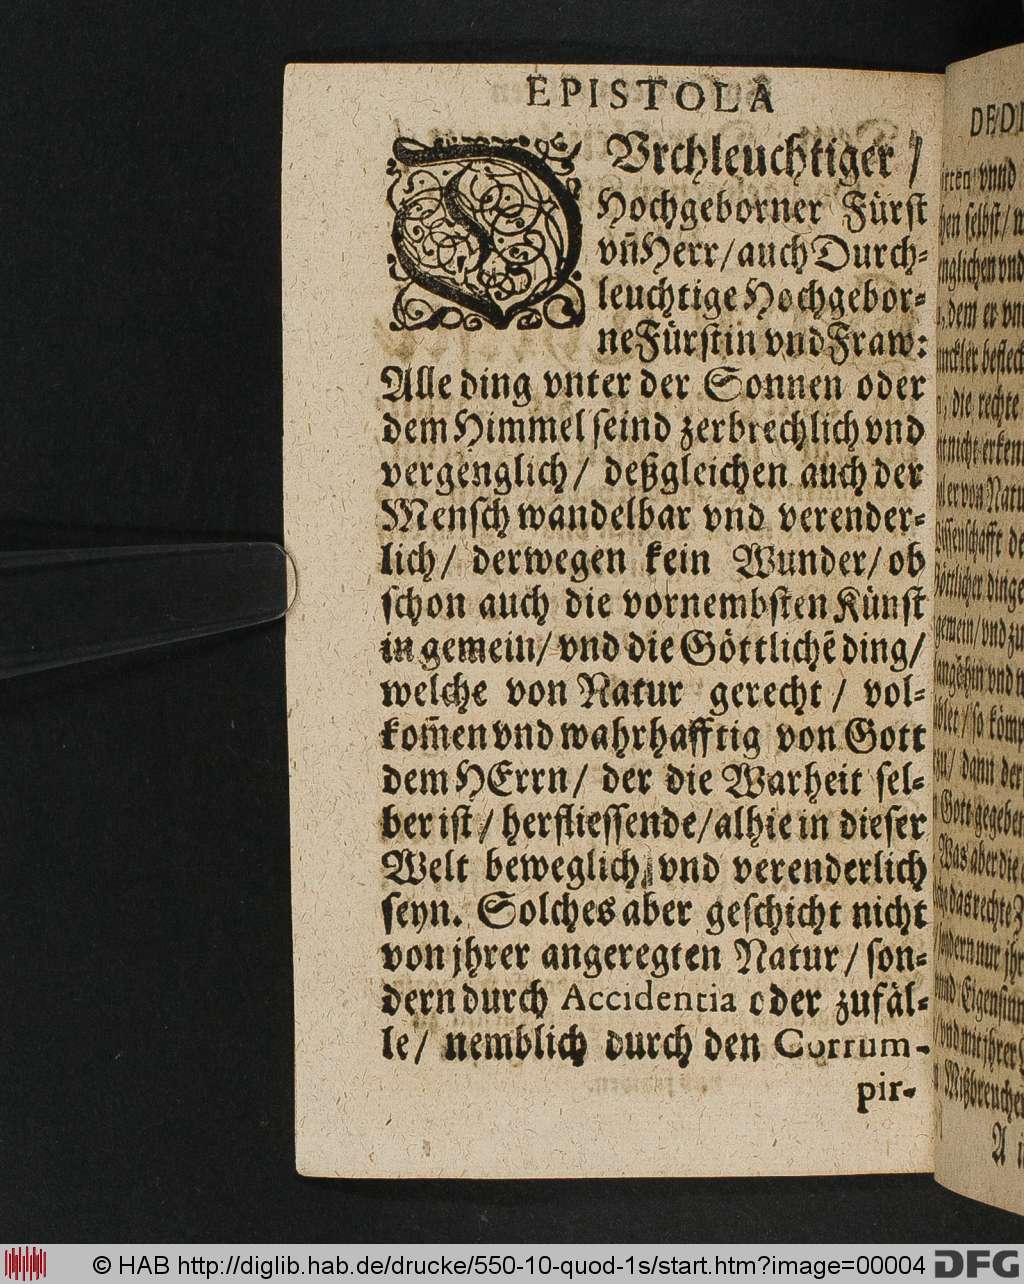 EPISTOLA
DVrchleuchtiger /
Hochgeborner Fürst
vñ Herr / auch Durch-
leuchtige Hochgebor-
ne Fürstin vnd Fraw:
Alle ding vnter der Sonnen oder
dem Himmel seind zerbrechlich vnd
vergenglich / deßgleichen auch der
Mensch wandelbar vnd verender-
lich / derwegen kein Wunder / ob
schon auch die vornembsten Künst
in gemein / vnd die Göttlichẽ ding /
welche von Natur gerecht / vol-
kom̃en vnd wahrhafftig von Gott
dem HErrn / der die Warheit sel-
ber ist / herfliessende / alhie in dieser
Welt beweglich vnd verenderlich
seyn. Solches aber geschicht nicht
von jhrer angeregten Natur / son-
dern durch Accidentia oder zufäl-
le / nemblich durch den Corrum-
pir-
vnd
selbst /
dem er
die rechte
von Natu
dann der
Was aber die
© HAB http://diglib.hab.de/drucke/550-10-quod-1s/start.htm?image=00004
DFG